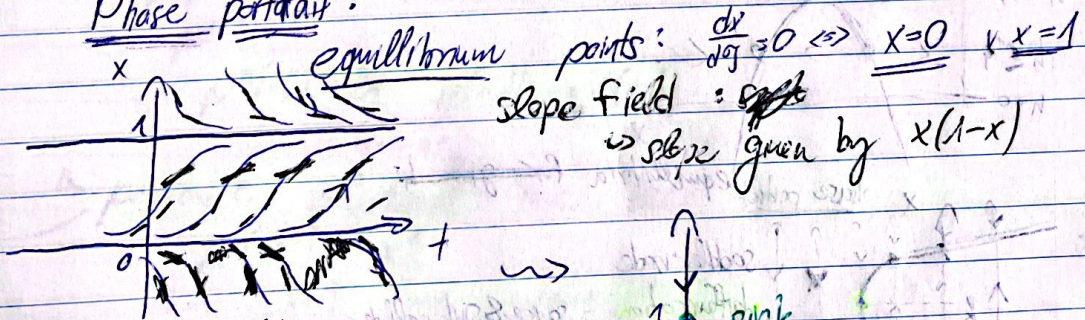 Phase portrait:
equillibrium points: dx/dy = 0 <=> x=0 x=1
x
slope field :
slope given by x(1-x)
1
0
t
1 sink